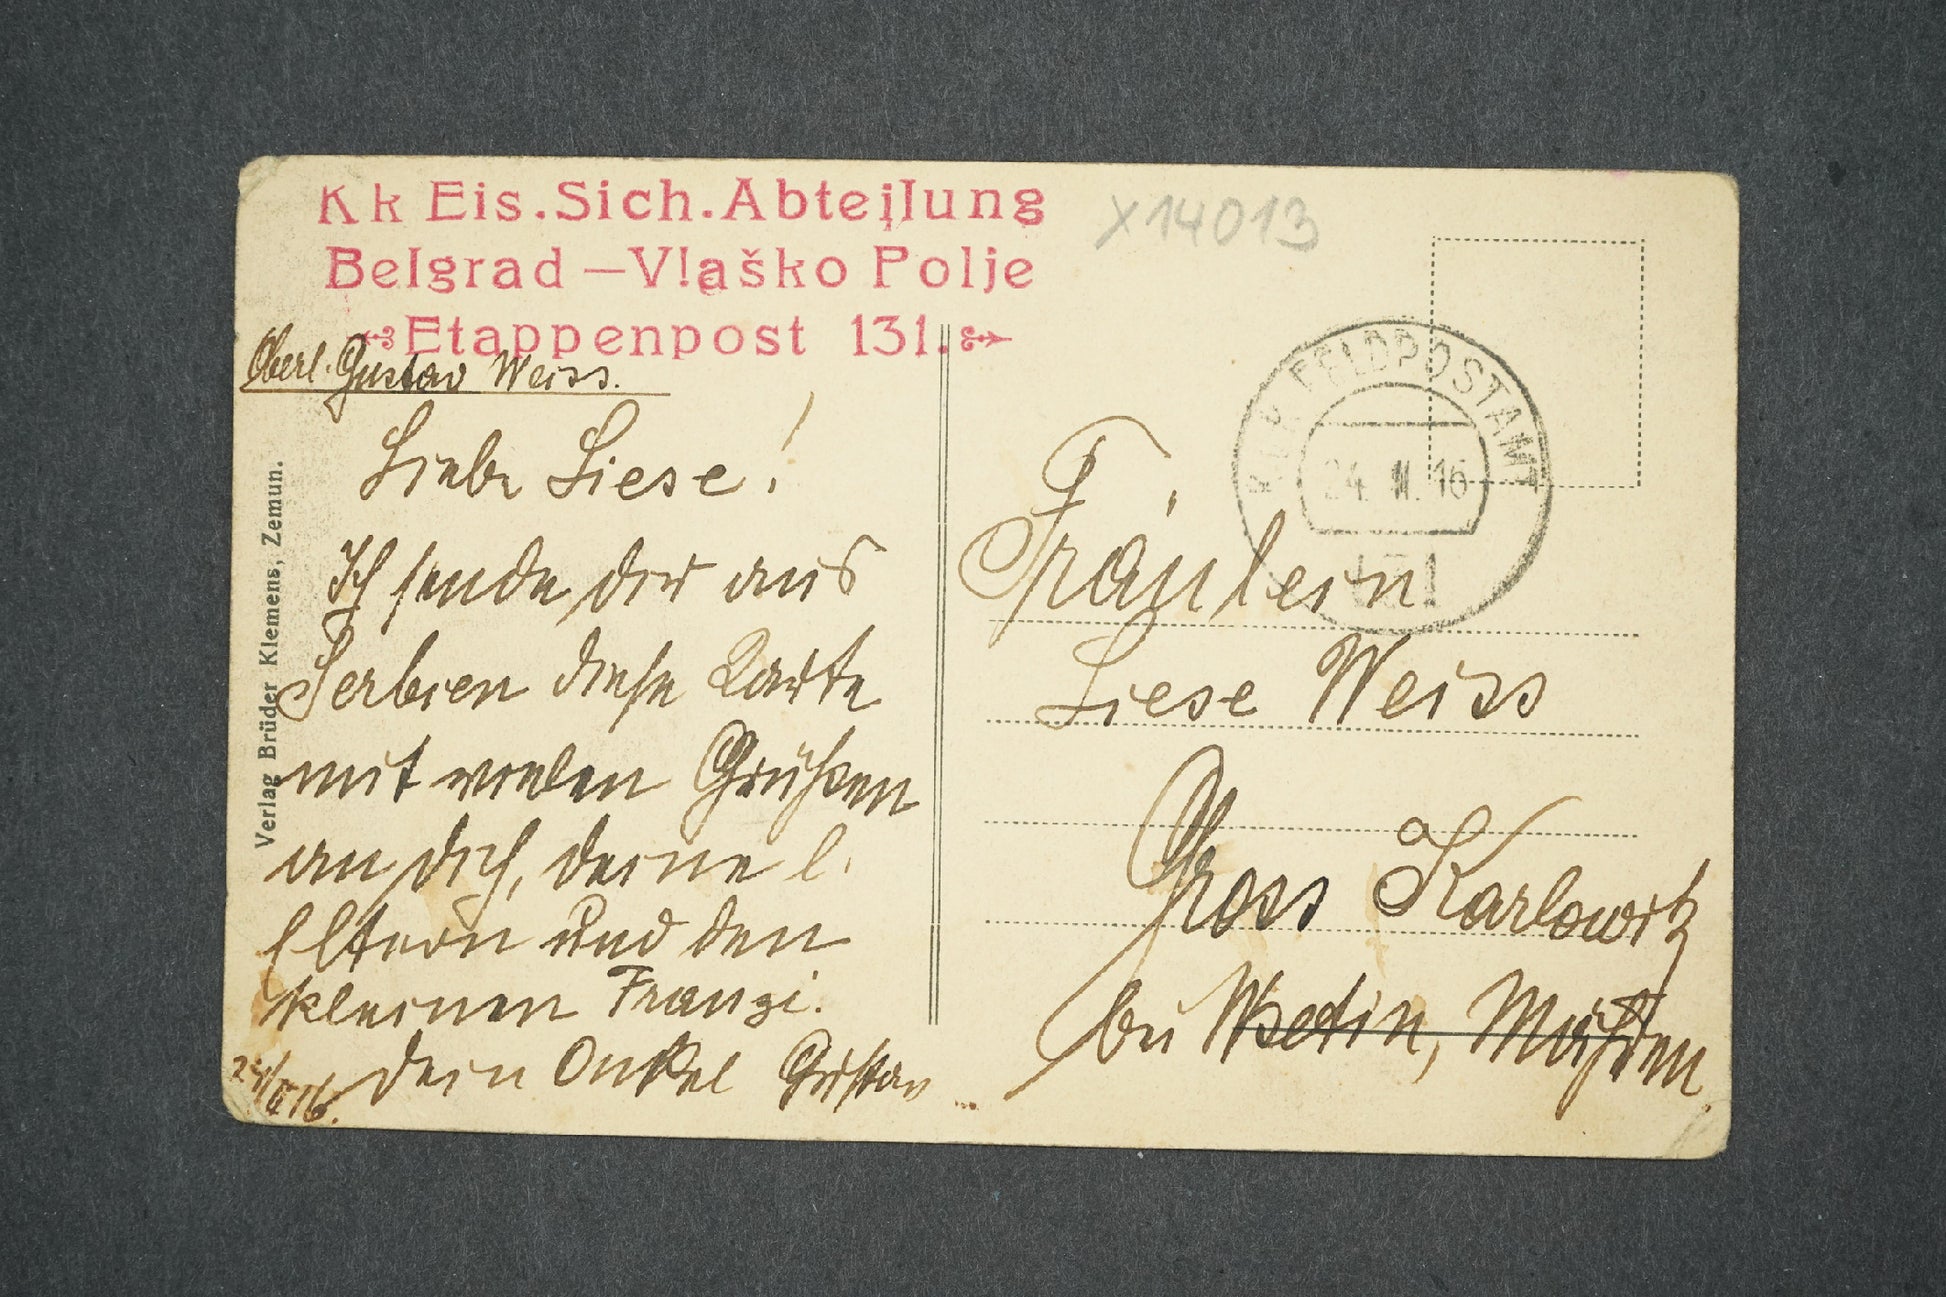 Kk Eis. Sich. Abteilung
Belgrad – Vlaško Polje
Etappenpost 131.
X14013
Oberl. Gustav Weiss.
Liebe Liese!
Ich sende dir aus
Serbien diese Karte
mit vielen Grüßen
an dich, deine l.
Eltern und den
kleinen Franzi.
dein Onkel Gustav
24/II 16.
Verlag Brüder Klemens, Zemun.
K.u.K. FELDPOSTAMT
24. II. 16
131
Fräulein
Liese Weiss
Gross Karlowitz
bei Wsetin, Mähren.